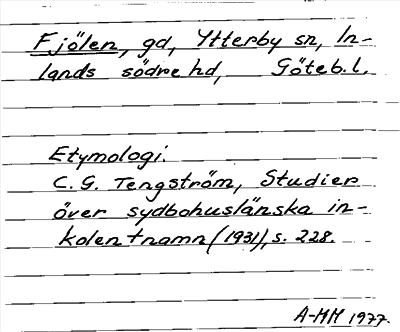 Fjölen, gd, Ytterby sn, In-
lands södre hd, Göteb. l.
Etymologi.
C. G. Tengström, Studier
över sydbohuslänska in-
kolentnamn (1931), s. 228.
A-MM 1977.